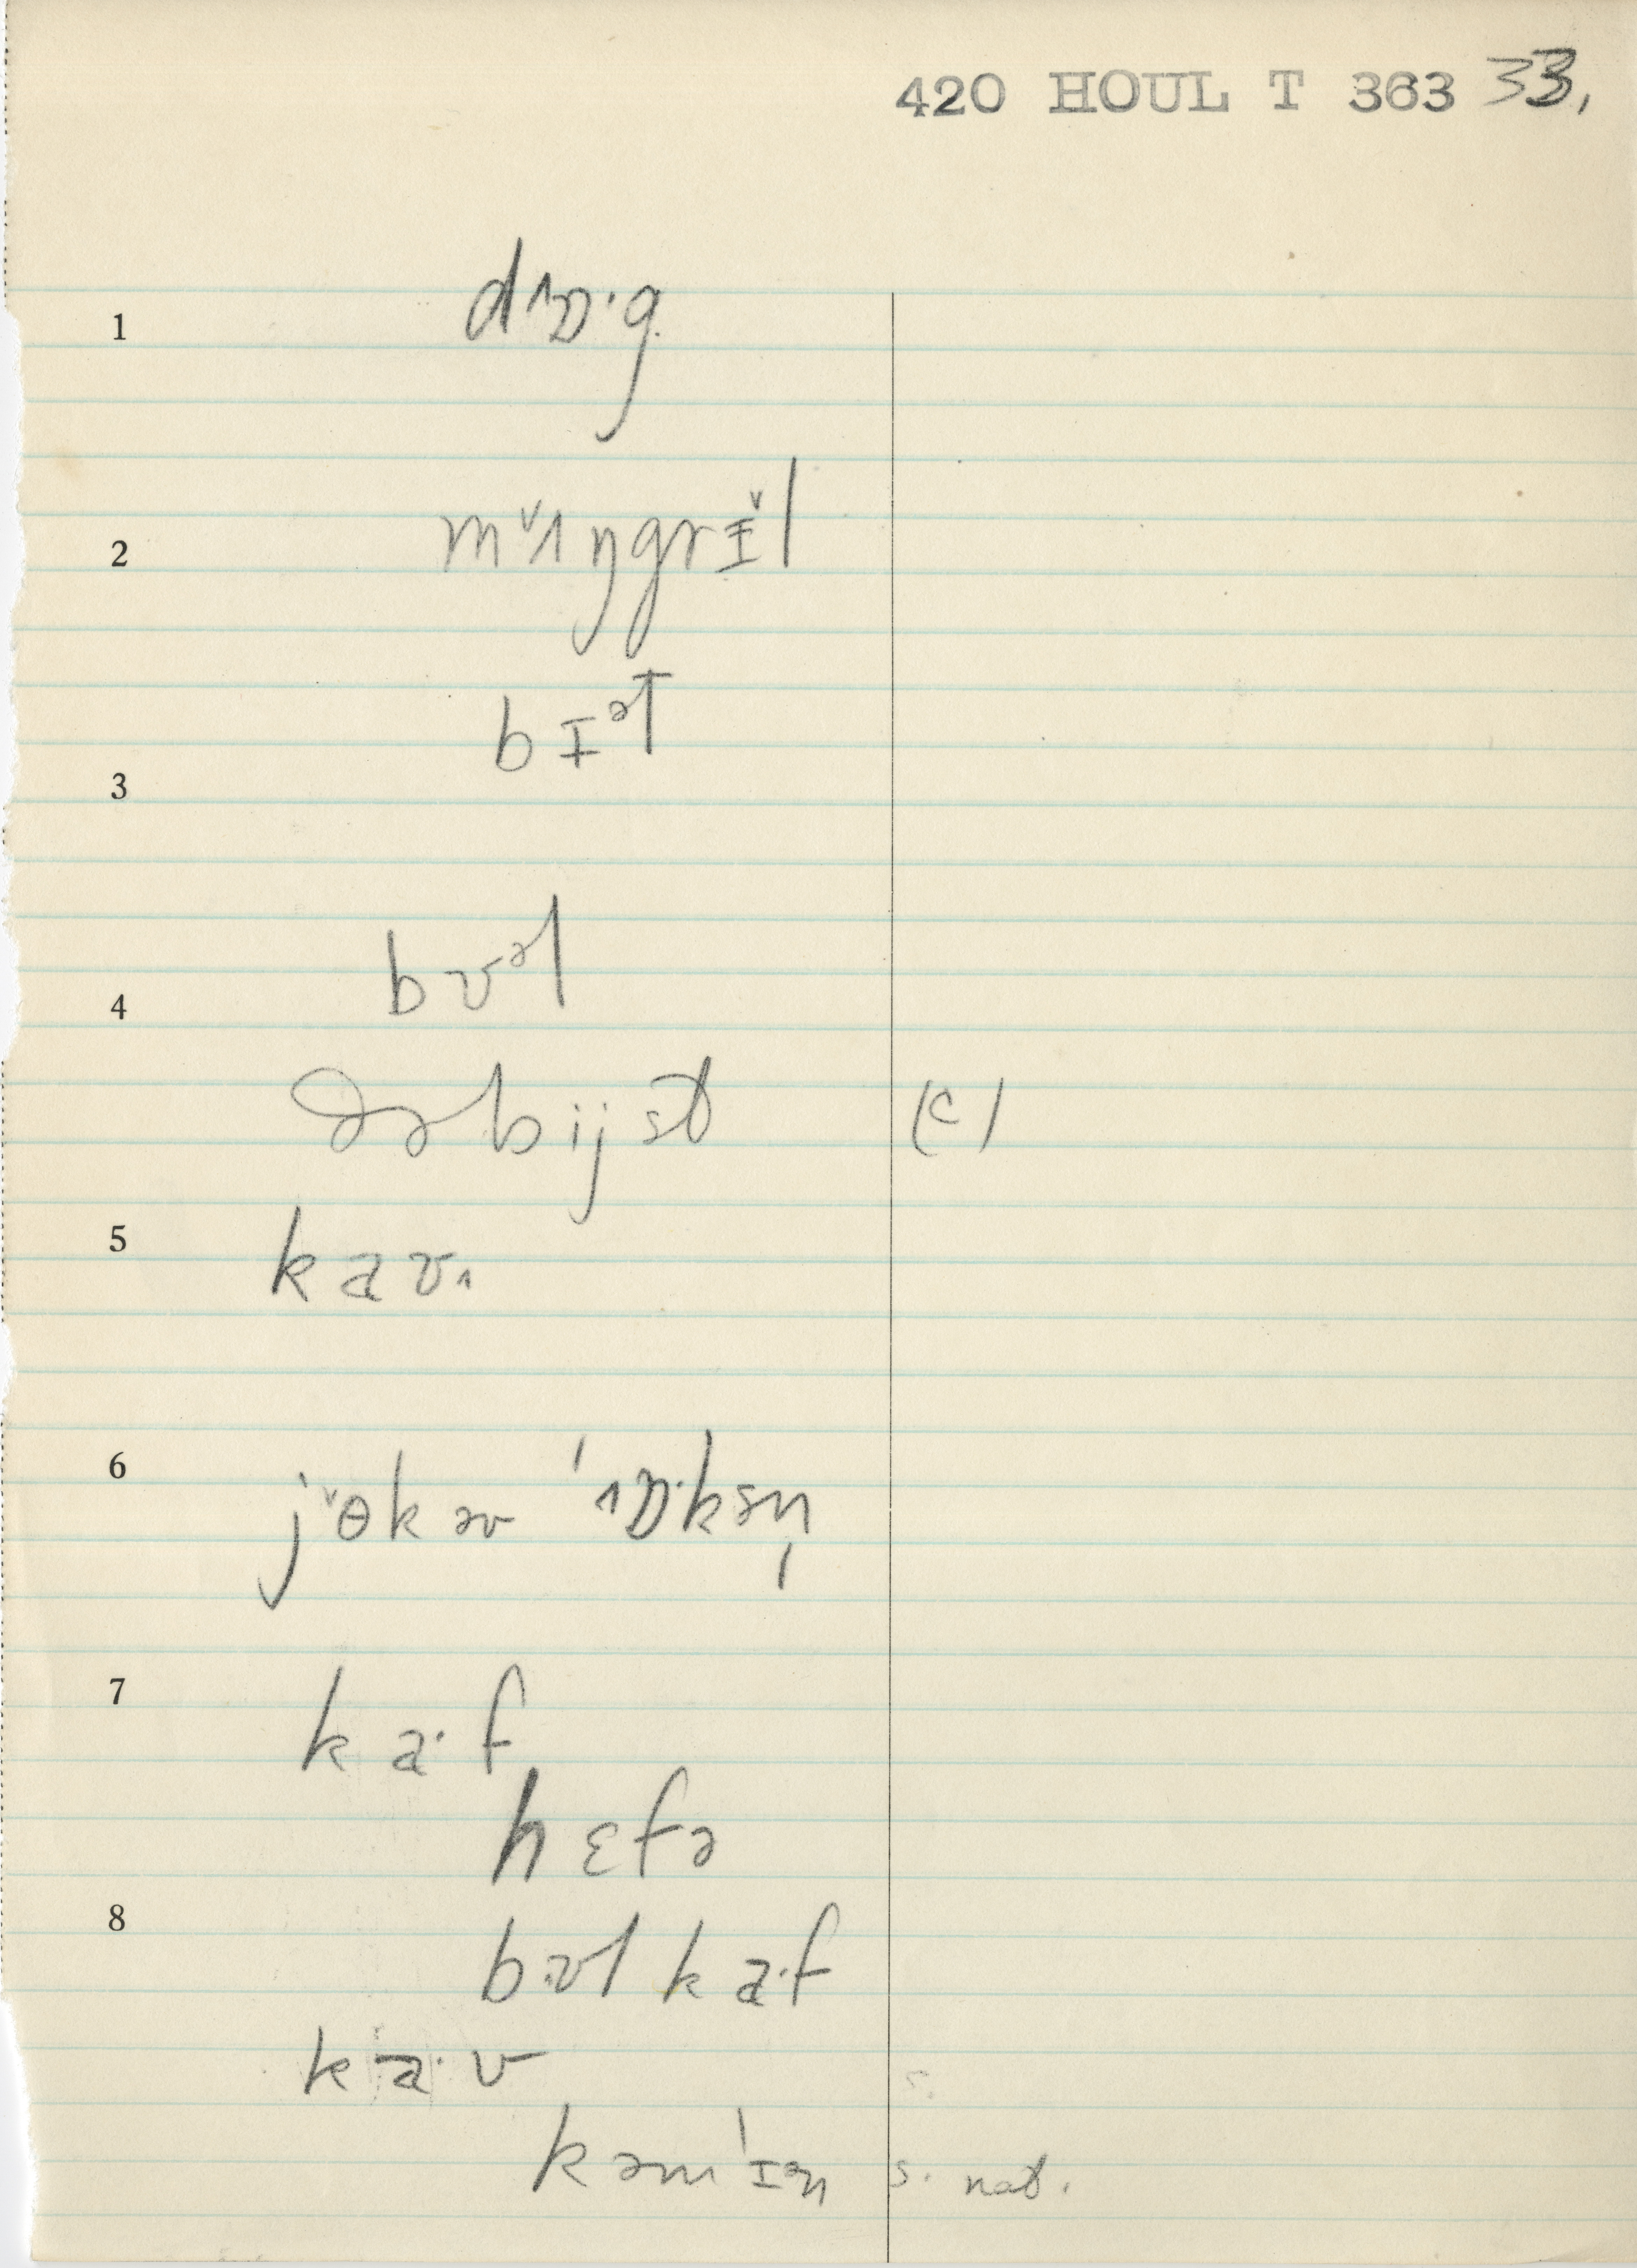 420 HOUL T 363 33,
1 dɒ·g
2 mˇʌŋgrɪ̵̌l
3 bɪᵊɫ
4 bʊᵊl
ðəbijst (c)
5 kaʊ
6 jˇɵkəv ˈɒ·ksn̩
7 ka·f
hɛfə
8 bʊl ka·f
ka·v s.
kəmˈɪᵊn s. nat.